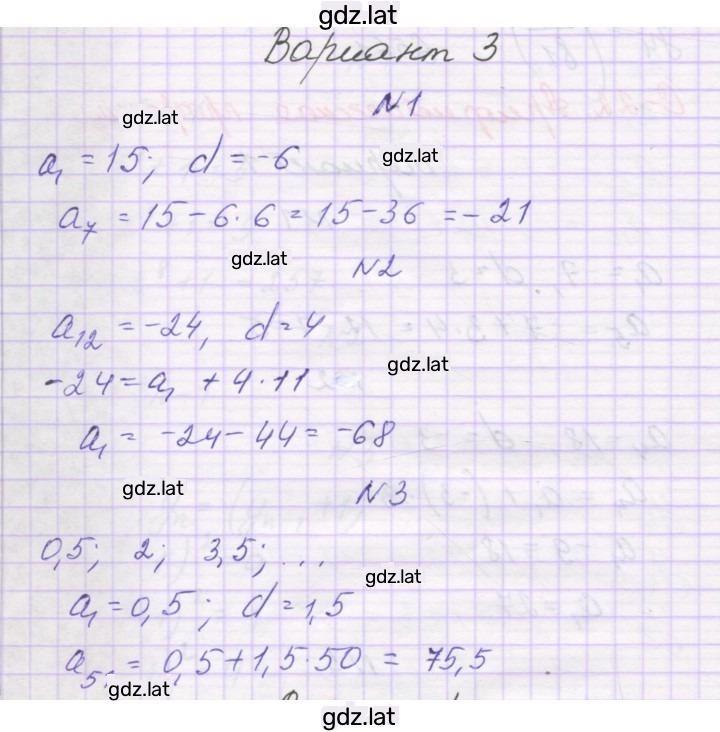 gdz.lat
Вариант 3
gdz.lat
N1
a₁ = 15; d = -6
gdz.lat
a₇ = 15 - 6·6 = 15 - 36 = -21
gdz.lat
N2
a₁₂ = -24, d = 4
gdz.lat
-24 = a₁ + 4·11
a₁ = -24 - 44 = -68
gdz.lat
N3
0,5; 2; 3,5; ...
gdz.lat
a₁ = 0,5; d = 1,5
a₅₁ = 0,5 + 1,5·50 = 75,5
gdz.lat
gdz.lat